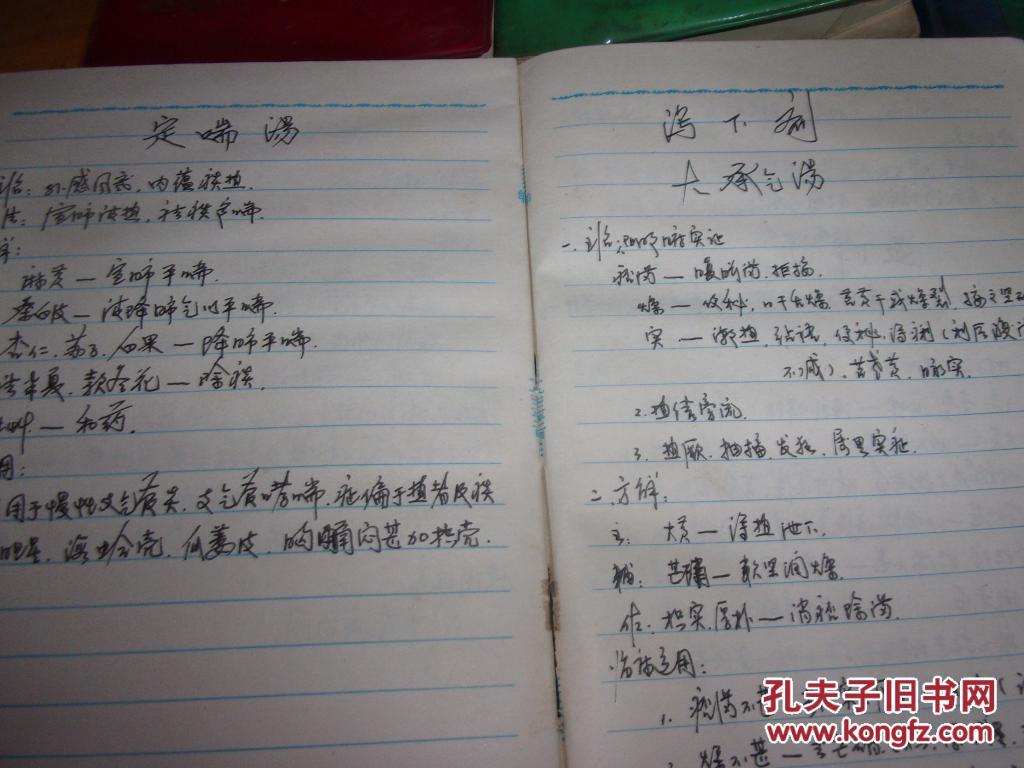 定喘汤
主治：外感风寒，内蕴痰热。
法：宣肺清热，祛痰平喘。
解：
麻黄—宣肺平喘。
桑白皮—清降肺气以平喘。
杏仁、苏子、白果—降肺平喘。
半夏、款冬花—除痰。
草—和药。
用：
用于慢性支气管炎、支气管哮喘，证偏于热者及痰
海蛤壳、瓜蒌皮，胸闷甚加枳壳。
泻下剂
大承气汤
一、主治：阳明腑实证
痞满—腹皆满，拒按。
燥—便秘，口干舌燥，苔黄干或燥裂，
实—潮热，谵语，便秘，泻痢（利后腹
不减），苔黄，脉实。
2. 热结旁流。
3. 热厥、抽搐、发狂，属里实证。
二、方解：
主：大黄—荡热泄下。
辅：芒硝—软坚润燥。
佐：枳实、厚朴—消痞除满。
临症运用：
1. 痞满不甚—
燥不甚—
孔夫子旧书网
www.kongfz.com